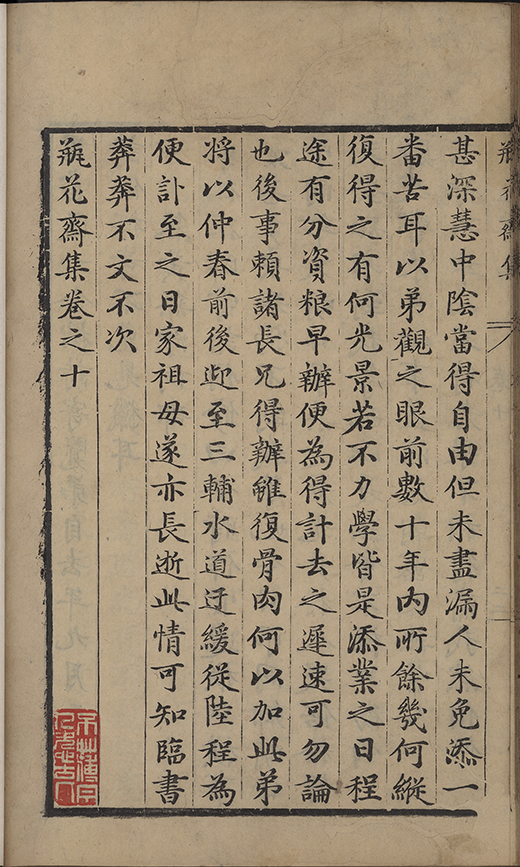 甚深慧中陰當得自由但未盡漏人未免添一
番苦耳以弟觀之眼前數十年內所餘幾何縱
復得之有何光景若不力學皆是添業之日程
途有分資粮早辦便為得計去之遲速可勿論
也後事頼諸長兄得辦雖復骨肉何以加此弟
将以仲春前後迎至三輔水道迂緩從陸程為
便訃至之日家祖母遂亦長逝此情可知臨書
莾莾不文不次
瓶花齋集卷之十